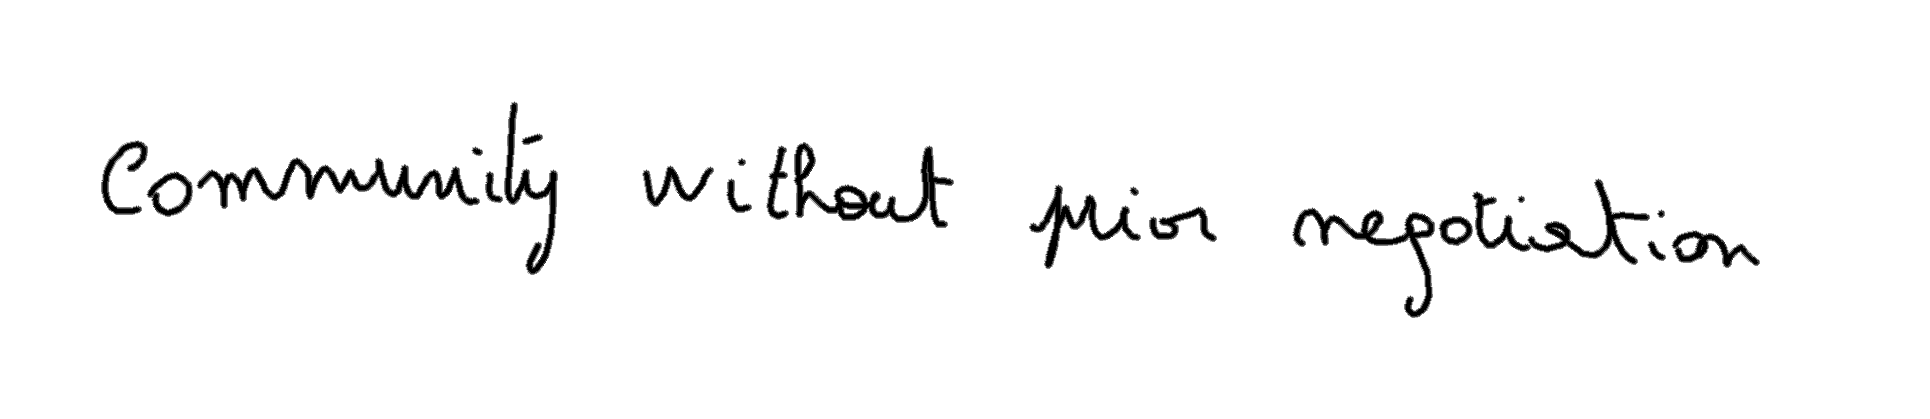 Community without prior negotiation